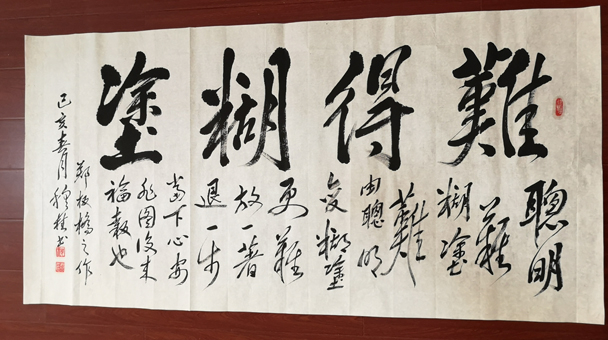 難得糊塗
聰明
難
糊塗
難
由聰明
糊塗
更難
放一著
退一步
當下心安
非圖後來
福報也
鄭板橋之作
己亥春月 书